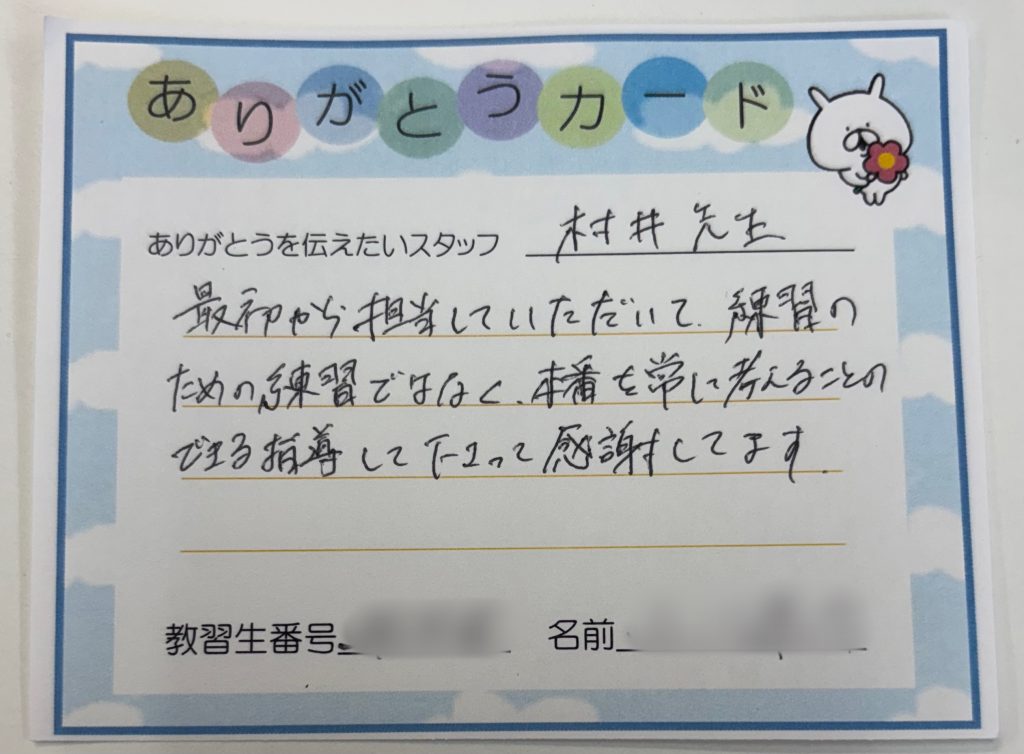 ありがとうカード
ありがとうを伝えたいスタッフ 村井 先生
最初から担当していただいて、練習の
ための練習ではなく、本番を常に考えることの
できる指導して下さって感謝してます。
教習生番号
名前